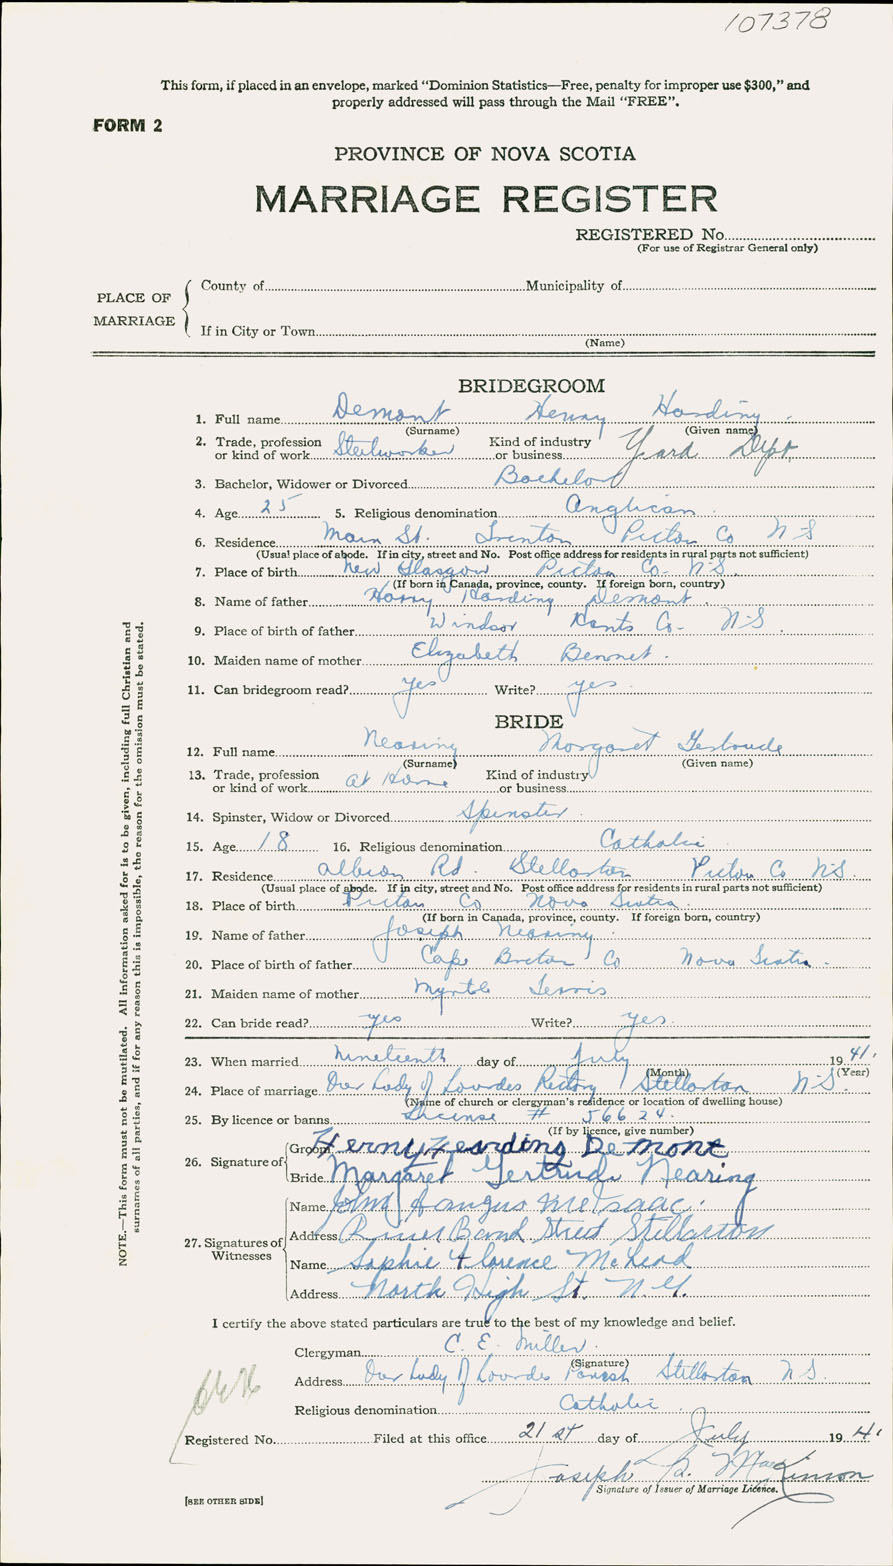 107378
This form, if placed in an envelope, marked “Dominion Statistics—Free, penalty for improper use $300,” and
properly addressed will pass through the Mail “FREE”.
FORM 2
PROVINCE OF NOVA SCOTIA
MARRIAGE REGISTER
REGISTERED No.
(For use of Registrar General only)
PLACE OF MARRIAGE
County of Municipality of
If in City or Town
(Name)
BRIDEGROOM
1. Full name Demont Henry Harding.
(Surname) (Given name)
2. Trade, profession or kind of work Steelworker Kind of industry or business Yard Dept.
3. Bachelor, Widower or Divorced Bachelor
4. Age 25 5. Religious denomination Anglican.
6. Residence Main St. Trenton Pictou Co N-S
(Usual place of abode. If in city, street and No. Post office address for residents in rural parts not sufficient)
7. Place of birth New Glasgow Pictou Co. N-S.
(If born in Canada, province, county. If foreign born, country)
8. Name of father Harry Harding Demont.
9. Place of birth of father Windsor Hants Co- N-S.
10. Maiden name of mother Elizabeth Bennet.
11. Can bridegroom read? yes Write? yes.
BRIDE
12. Full name Nearing Margaret Gertrude
(Surname) (Given name)
13. Trade, profession or kind of work at Home Kind of industry or business
14. Spinster, Widow or Divorced Spinster.
15. Age 18 16. Religious denomination Catholic.
17. Residence Albion Rd. Stellarton Pictou Co N-S.
(Usual place of abode. If in city, street and No. Post office address for residents in rural parts not sufficient)
18. Place of birth Pictou Co Nova Scotia.
(If born in Canada, province, county. If foreign born, country)
19. Name of father Joseph Nearing.
20. Place of birth of father Cape Breton Co Nova Scotia.
21. Maiden name of mother Myrtle
22. Can bride read? yes Write? yes.
23. When married Nineteenth day of July 19 41.
(Month) (Year)
24. Place of marriage Our Lady of Lourdes Rectory Stellarton N-S.
(Name of church or clergyman's residence or location of dwelling house)
25. By licence or banns License # 56624.
(If by licence, give number)
26. Signature of
Groom Henry Hearding De mont
Bride Margaret Gertrude Nearing
27. Signatures of Witnesses
Name John Aangus McIsaac.
Address River Band Street Stellarton
Name Sophie Florence McLeod
Address North High St. N.G.
I certify the above stated particulars are true to the best of my knowledge and belief.
Clergyman C. E. Miller.
(Signature)
Address Our Lady of Lourdes Parish Stellarton N S.
Religious denomination Catholic.
Registered No. Filed at this office 21st day of July 19 41
Joseph B. MacKinnon
Signature of Issuer of Marriage Licence.
[SEE OTHER SIDE]
NOTE.—This form must not be mutilated. All information asked for is to be given, including full Christian and
surnames of all parties, and if for any reason this is impossible, the reason for the omission must be stated.